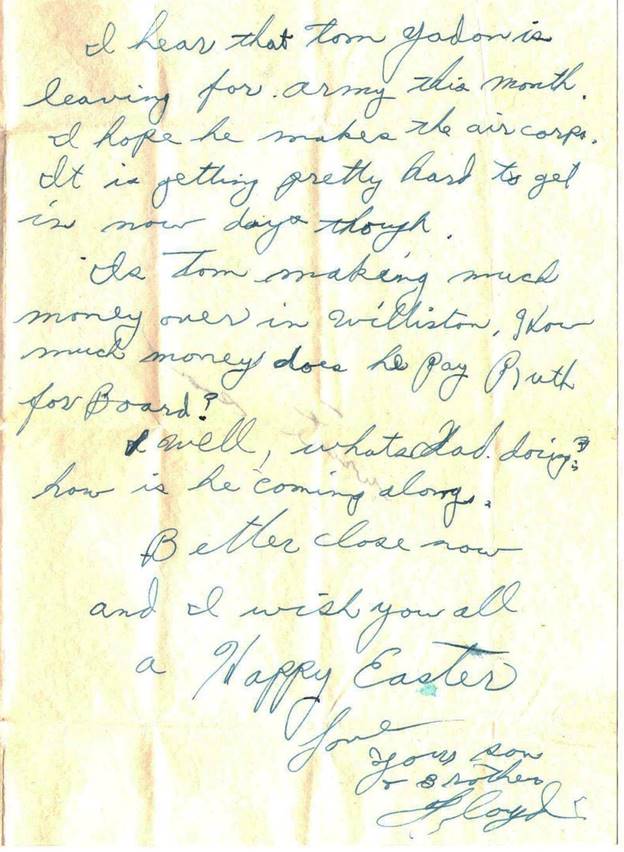 I hear that tom Yadon is
leaving for army this month.
I hope he makes the air corps.
It is getting pretty hard to get
in now days though.
Is Tom making much
money over in Williston, How
much money does he Pay Ruth
for Board?
Well, whats Dad. doing?
how is he coming along.
Better close now
and I wish you all
a Happy Easter
Love
Your son
+ Brother
Floyd